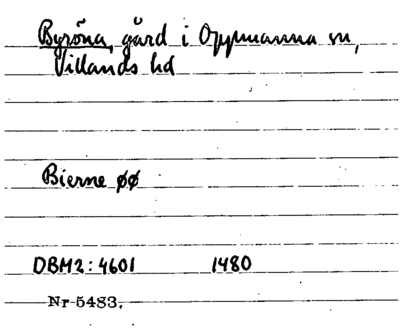 Byröna, gård i Oppmanna sn,
Villands hd
Bierne øø
DBM2:4601 1480
Nr 5483.